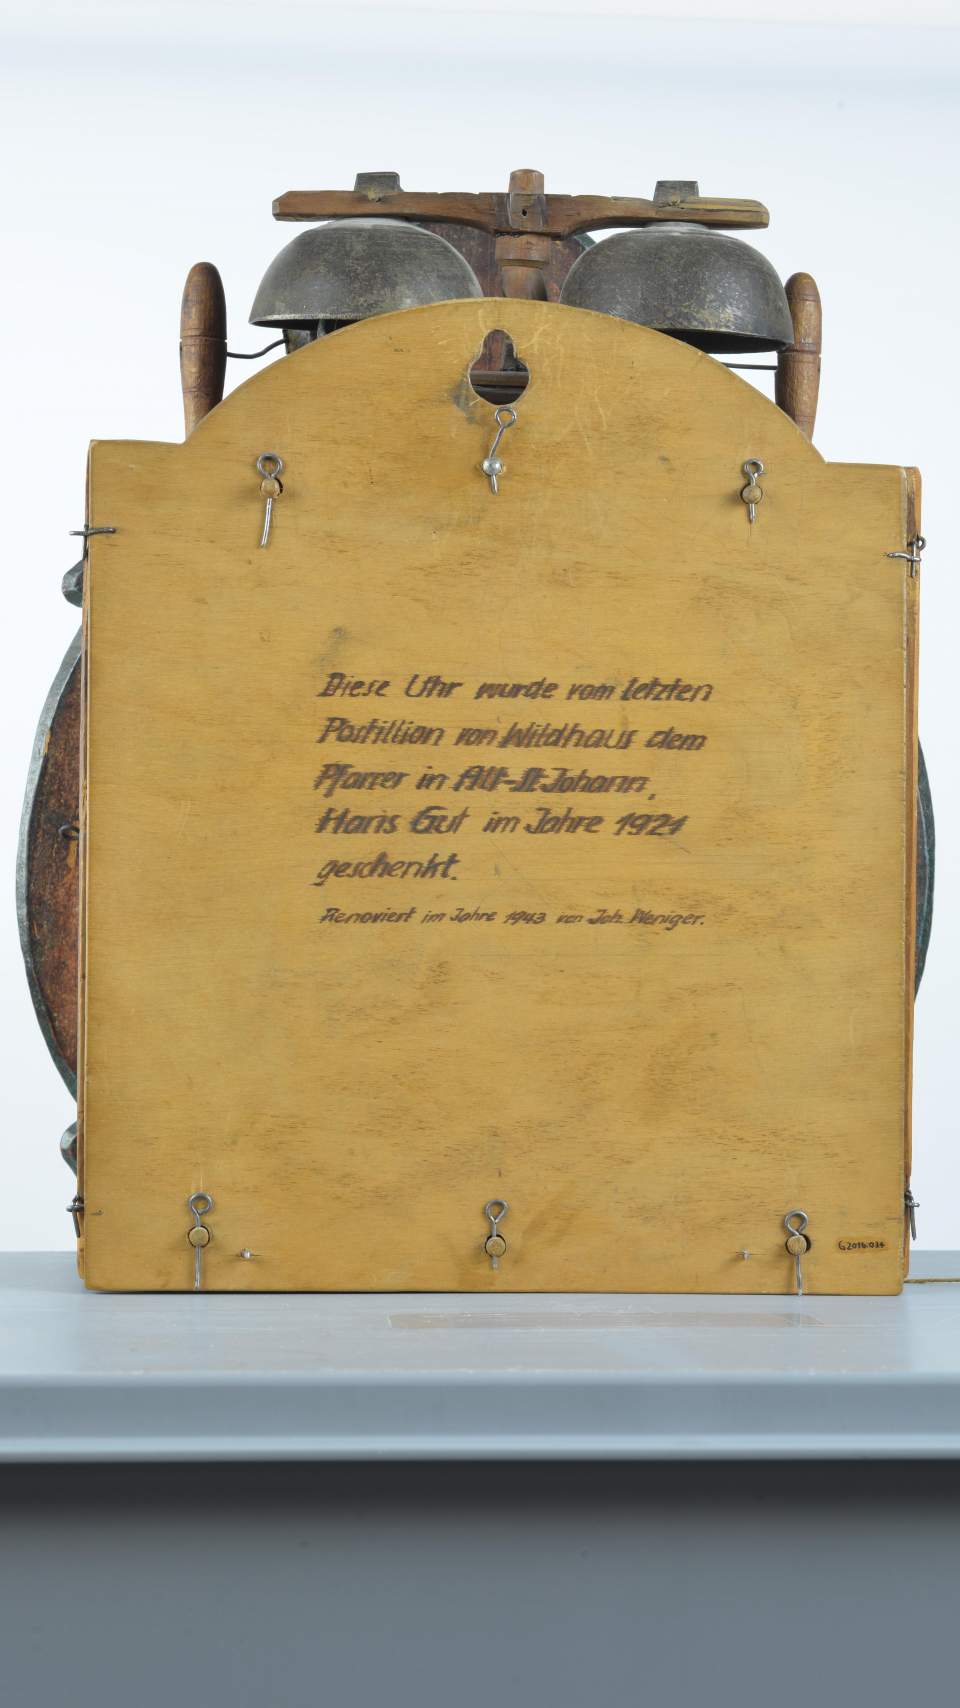 Diese Uhr wurde vom letzten
Postillion von Wildhaus dem
Pfarrer in Alt-St Johann,
Hans Gut im Jahre 1921
geschenkt.
Renoviert im Jahre 1943 von Joh. Weniger.
G2016.034